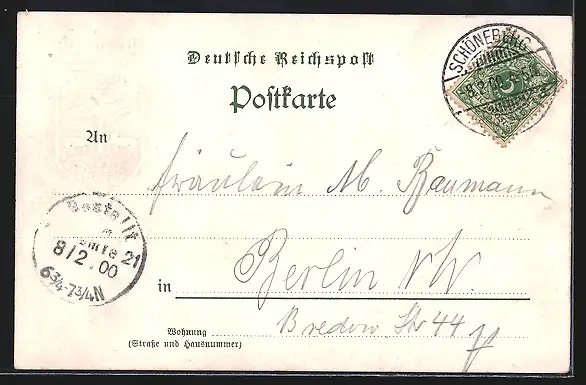 Deutsche Reichspost
Postkarte
SCHÖNEBERG
8.2.00
An
Fräulein M. Baumann
Bestellt
21
8/2.00
6¾-7¾N
in Berlin NW.
Wohnung
(Straße und Hausnummer)
Bredow Str 44